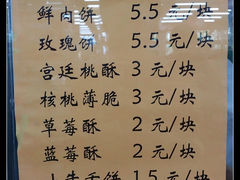 鲜肉饼 5.5元/块
玫瑰饼 5.5元/块
宫廷桃酥 3元/块
核桃薄脆 3元/块
草莓酥 2元/块
蓝莓酥 2元/块
饼 1.5元/块